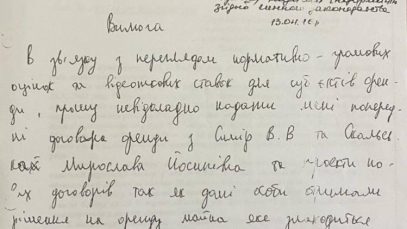 згідно чинного законодавства
13.04.16р
Вимога
В зв'язку з переглядом нормативно - грошових
оцінок та відсоткових ставок для суб'єктів орен-
ди, прошу невідкладно надати мені поперед-
ні договора оренди з Симір В.В та
Мирослава Йосипівна та проекти но-
их договорів так як дані особи отримали
рішення на оренду майна яке знаходиться